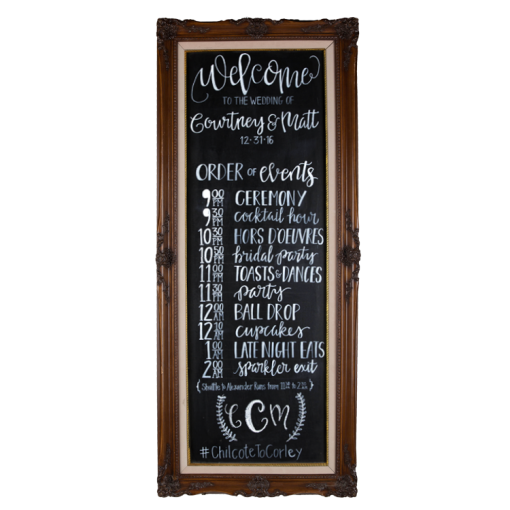 Welcome
TO THE WEDDING OF
Courtney & Matt
12·31·16
ORDER OF events
9 00 PM CEREMONY
9 30 PM cocktail hour
10 30 PM HORS D'OEUVRES
10 50 PM bridal party
11 00 PM TOASTS & DANCES
11 30 PM party
12 00 AM BALL DROP
12 10 AM cupcakes
1 00 AM LATE NIGHT EATS
2 00 AM sparkler exit
{Shuttle to Alexander Runs from to }
C C M
#ChilcoteToCorley